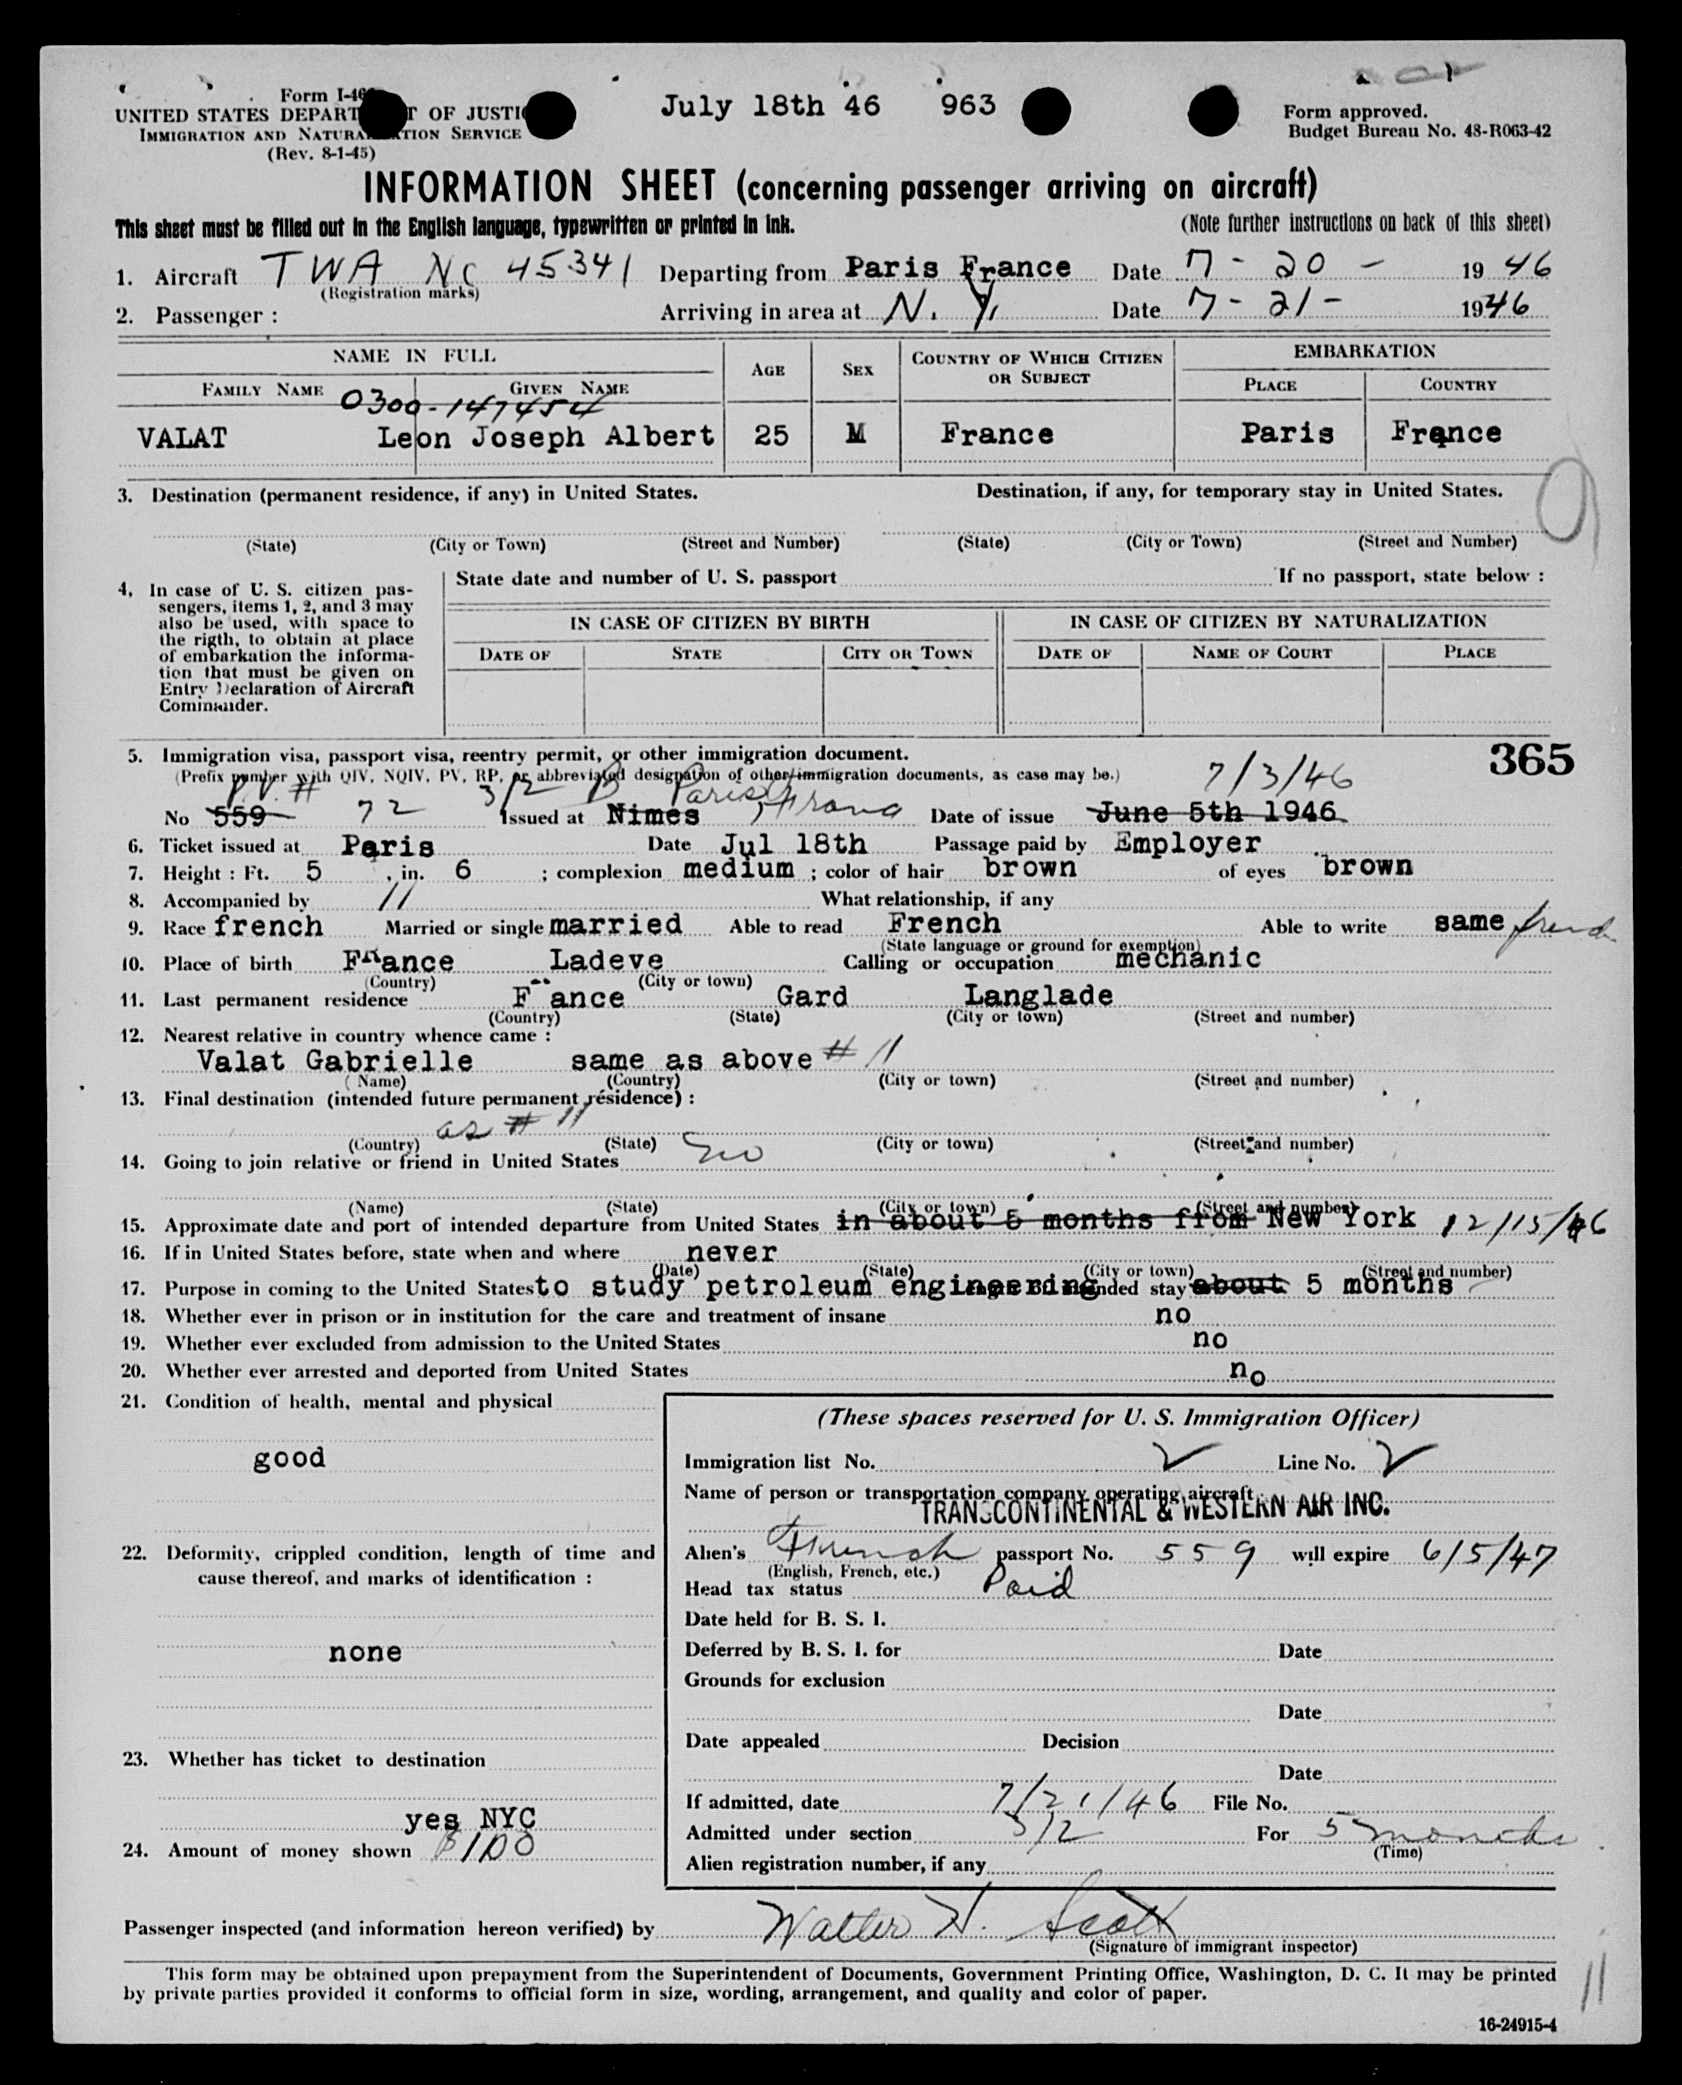 July 18th 46 963
Form I-46
UNITED STATES DEPART T OF JUSTI
IMMIGRATION AND NATURALIZATION SERVICE
(Rev. 8-1-45)
Form approved.
Budget Bureau No. 43-R063-42
INFORMATION SHEET (concerning passenger arriving on aircraft)
This sheet must be filled out in the English language, typewritten or printed in ink. (Note further instructions on back of this sheet)
1. Aircraft TWA NC 45341 Departing from Paris France Date 7-20- 19 46
(Registration marks)
2. Passenger : Arriving in area at N. Y. Date 7-21- 1946
NAME IN FULL AGE SEX COUNTRY OF WHICH CITIZEN OR SUBJECT EMBARKATION
FAMILY NAME GIVEN NAME PLACE COUNTRY
0300-147454
VALAT Leon Joseph Albert 25 M France Paris France
3. Destination (permanent residence, if any) in United States. Destination, if any, for temporary stay in United States.
(State) (City or Town) (Street and Number) (State) (City or Town) (Street and Number)
4. In case of U. S. citizen pas-
sengers, items 1, 2, and 3 may
also be used, with space to
the rigth, to obtain at place
of embarkation the informa-
tion that must be given on
Entry Declaration of Aircraft
Commander.
State date and number of U. S. passport If no passport, state below :
IN CASE OF CITIZEN BY BIRTH IN CASE OF CITIZEN BY NATURALIZATION
DATE OF STATE CITY OR TOWN DATE OF NAME OF COURT PLACE
5. Immigration visa, passport visa, reentry permit, or other immigration document. 365
(Prefix number with QIV, NQIV, PV, RP, or abbreviated designation of other immigration documents, as case may be.) 7/3/46
P.V. # 3/2 B Paris, France
No 559 72 Issued at Nimes Date of issue June 5th 1946
6. Ticket issued at Paris Date Jul 18th Passage paid by Employer
7. Height : Ft. 5 , in. 6 ; complexion medium ; color of hair brown of eyes brown
8. Accompanied by // What relationship, if any
9. Race french Married or single married Able to read French Able to write same french
(State language or ground for exemption)
10. Place of birth France Ladeve Calling or occupation mechanic
(Country) (City or town)
11. Last permanent residence F ance Gard Langlade
(Country) (State) (City or town) (Street and number)
12. Nearest relative in country whence came :
Valat Gabrielle same as above # 11
(Name) (Country) (City or town) (Street and number)
13. Final destination (intended future permanent résidence) :
as # 11
(Country) (State) (City or town) (Street and number)
14. Going to join relative or friend in United States no
(Name) (State) (City or town) (Street and number)
15. Approximate date and port of intended departure from United States in about 5 months from New York 12/15/46
16. If in United States before, state when and where never
(Date) (State) (City or town) (Street and number)
17. Purpose in coming to the United States to study petroleum engineering Length of intended stay about 5 months
18. Whether ever in prison or in institution for the care and treatment of insane no
19. Whether ever excluded from admission to the United States no
20. Whether ever arrested and deported from United States no
21. Condition of health, mental and physical
good
22. Deformity, crippled condition, length of time and
cause thereof, and marks of identification :
none
23. Whether has ticket to destination
yes NYC
24. Amount of money shown $100
(These spaces reserved for U. S. Immigration Officer)
Immigration list No. 2 Line No. 2
Name of person or transportation company operating aircraft
TRANSCONTINENTAL & WESTERN AIR INC.
Alien's French passport No. 559 will expire 6/5/47
(English, French, etc.)
Head tax status Paid
Date held for B. S. I.
Deferred by B. S. I. for Date
Grounds for exclusion
Date
Date appealed Decision
Date
If admitted, date 7/21/46 File No.
Admitted under section 3/2 For 5 months
(Time)
Alien registration number, if any
Passenger inspected (and information hereon verified) by Walter H. Scott
(Signature of immigrant inspector)
This form may be obtained upon prepayment from the Superintendent of Documents, Government Printing Office, Washington, D. C. It may be printed
by private parties provided it conforms to official form in size, wording, arrangement, and quality and color of paper.
11
16-24915-4